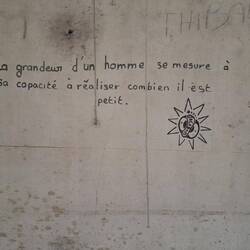 THIBA
La grandeur d'un homme se mesure à
sa capacité à réaliser combien il est
petit.